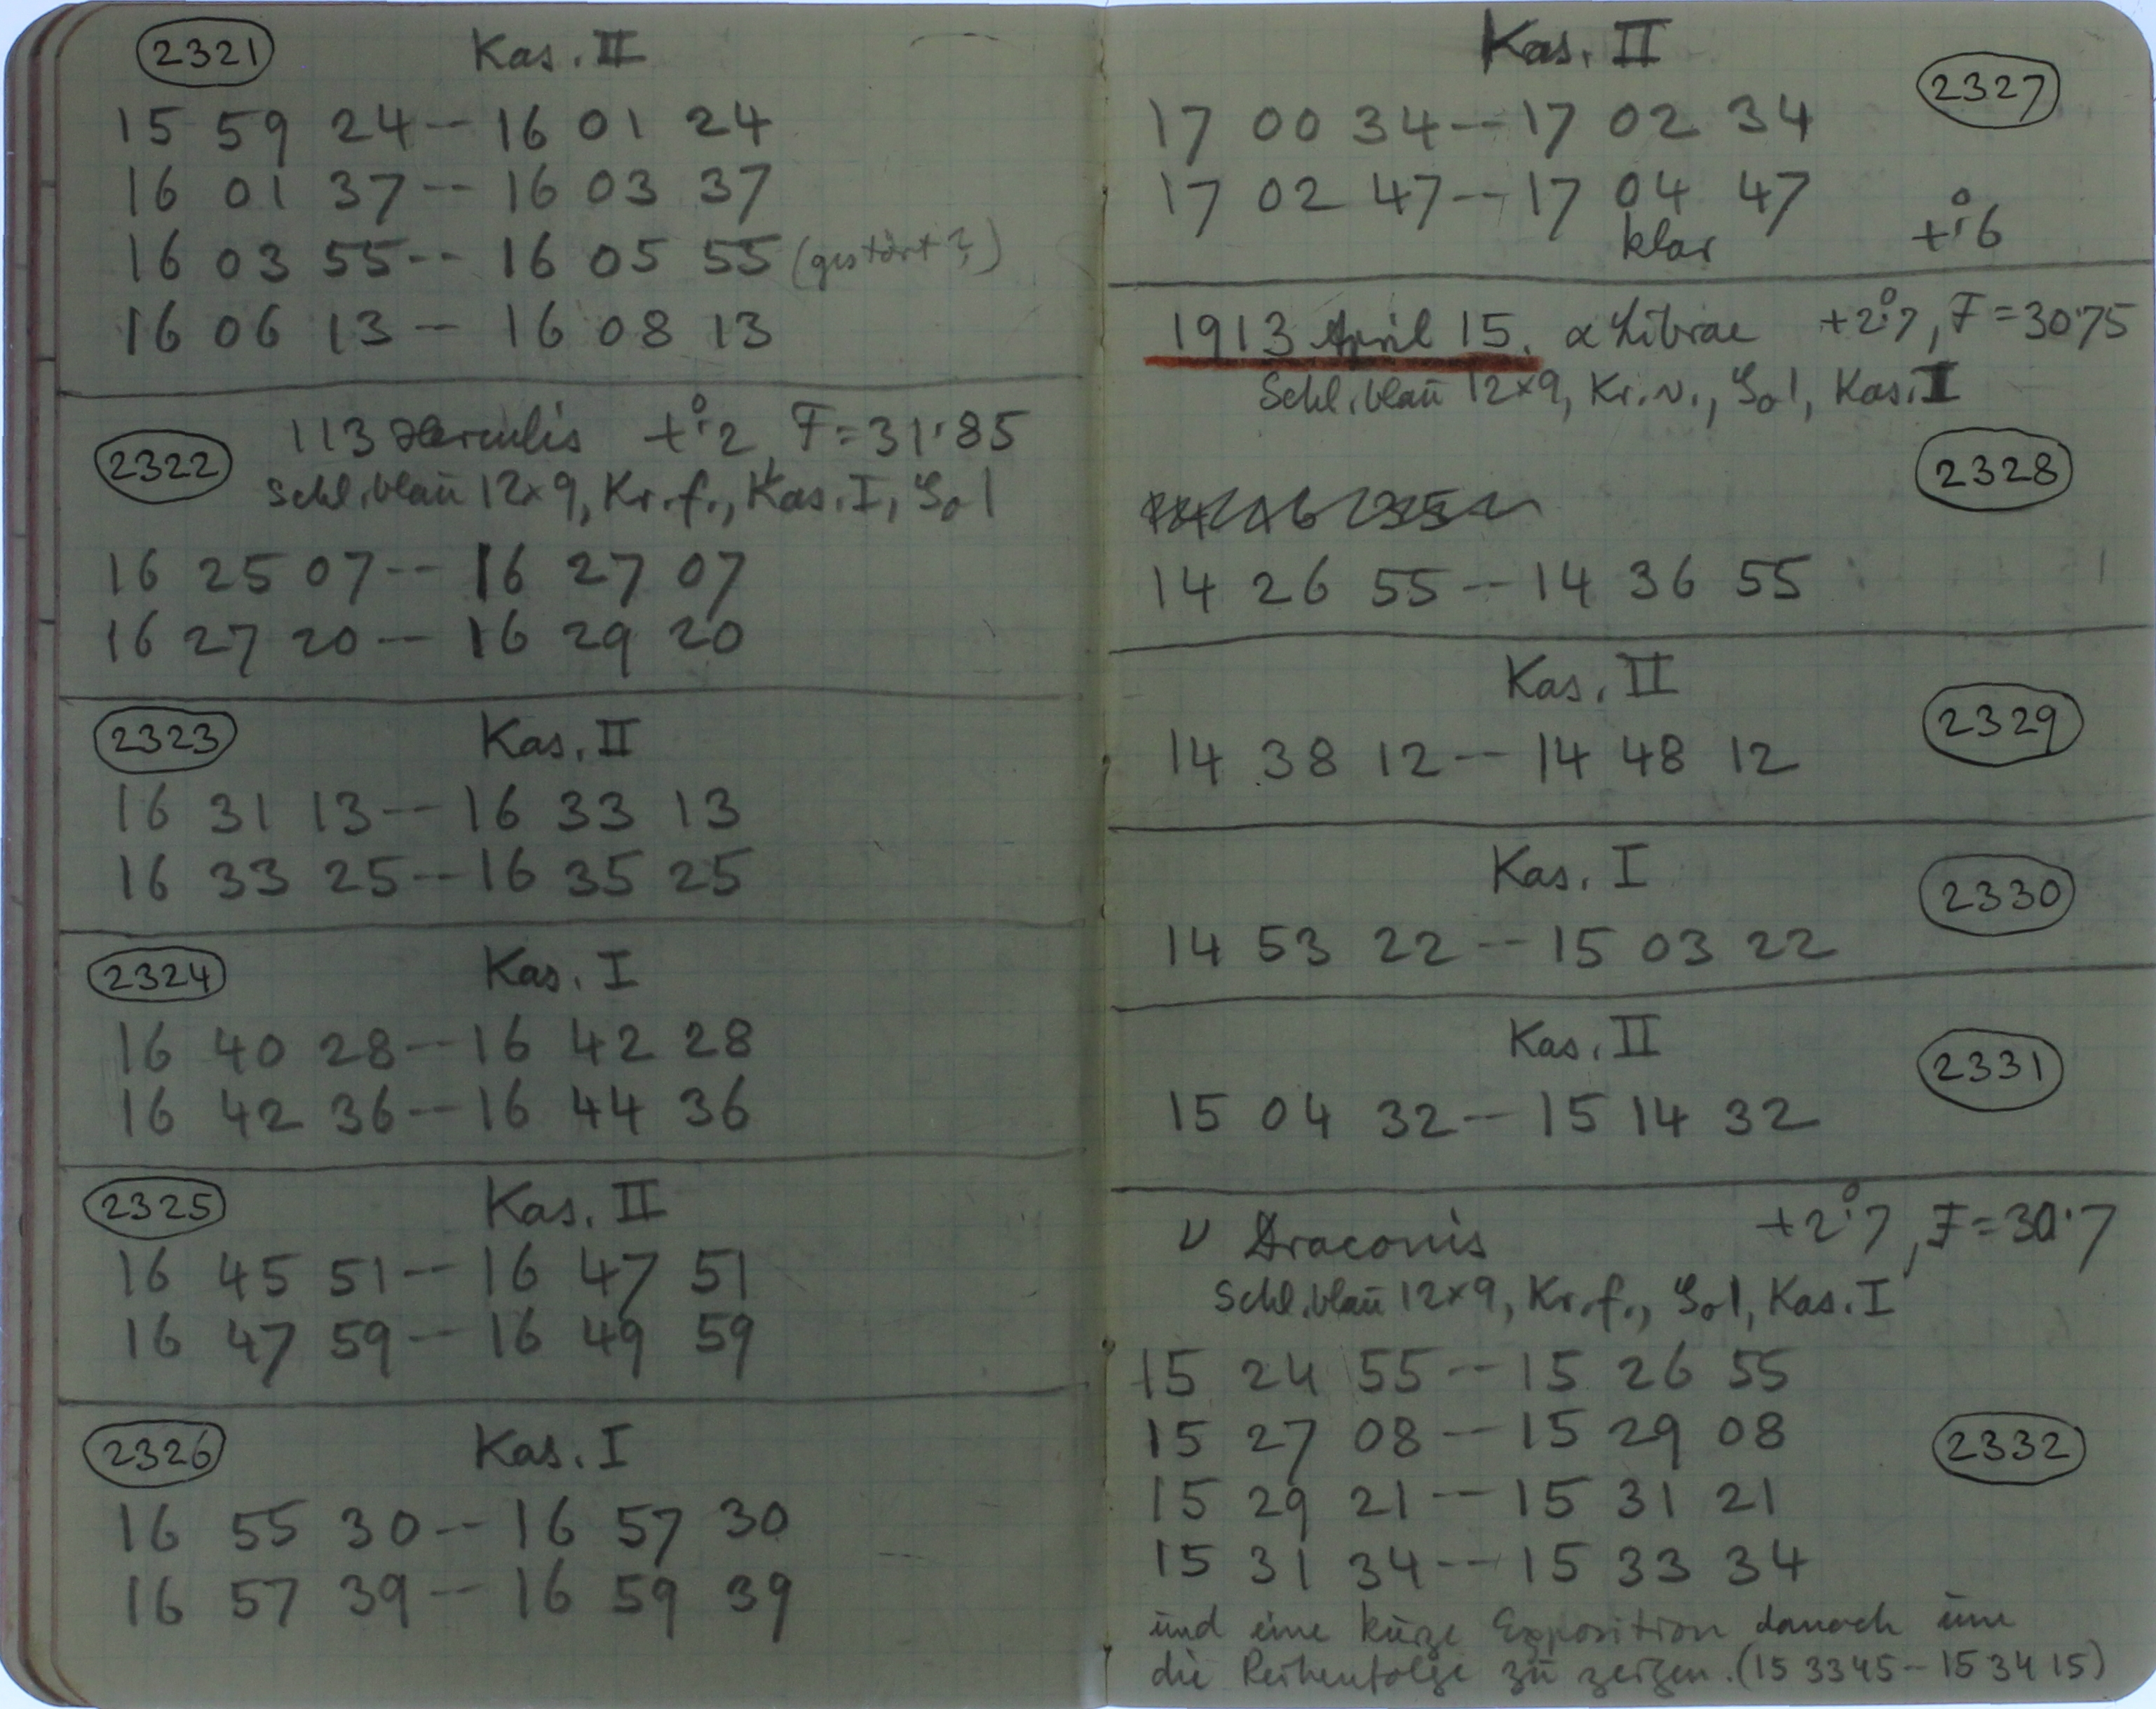 2321 Kas. II
15 59 24 -- 16 01 24
16 01 37 -- 16 03 37
16 03 55 -- 16 05 55 (gestört?)
16 06 13 -- 16 08 13
2322 113 Herculis +°.2, F=31.85
Schl. blau 12x9, Kr. f., Kas. I,
16 25 07 -- 16 27 07
16 27 20 -- 16 29 20
2323 Kas. II
16 31 13 -- 16 33 13
16 33 25 -- 16 35 25
2324 Kas. I
16 40 28 -- 16 42 28
16 42 36 -- 16 44 36
2325 Kas. II
16 45 51 -- 16 47 51
16 47 59 -- 16 49 59
2326 Kas. I
16 55 30 -- 16 57 30
16 57 39 -- 16 59 39
Kas. II 2327
17 00 34 -- 17 02 34
17 02 47 -- 17 04 47
klar +°.6
1913 April 15. α Librae +2°.7, F=30.75
Schl. blau 12x9, Kr. v., Kas. I
2328
14 26 55 -- 14 36 55
Kas. II 2329
14 38 12 -- 14 48 12
Kas. I 2330
14 53 22 -- 15 03 22
Kas. II 2331
15 04 32 -- 15 14 32
ν Draconis +2°.7, F=30.7
Schl. blau 12x9, Kr. f., Kas. I
15 24 55 -- 15 26 55
15 27 08 -- 15 29 08 2332
15 29 21 -- 15 31 21
15 31 34 -- 15 33 34
und eine kurze Exposition danach um
die Reihenfolge zu zeigen. (15 33 45 - 15 34 15)